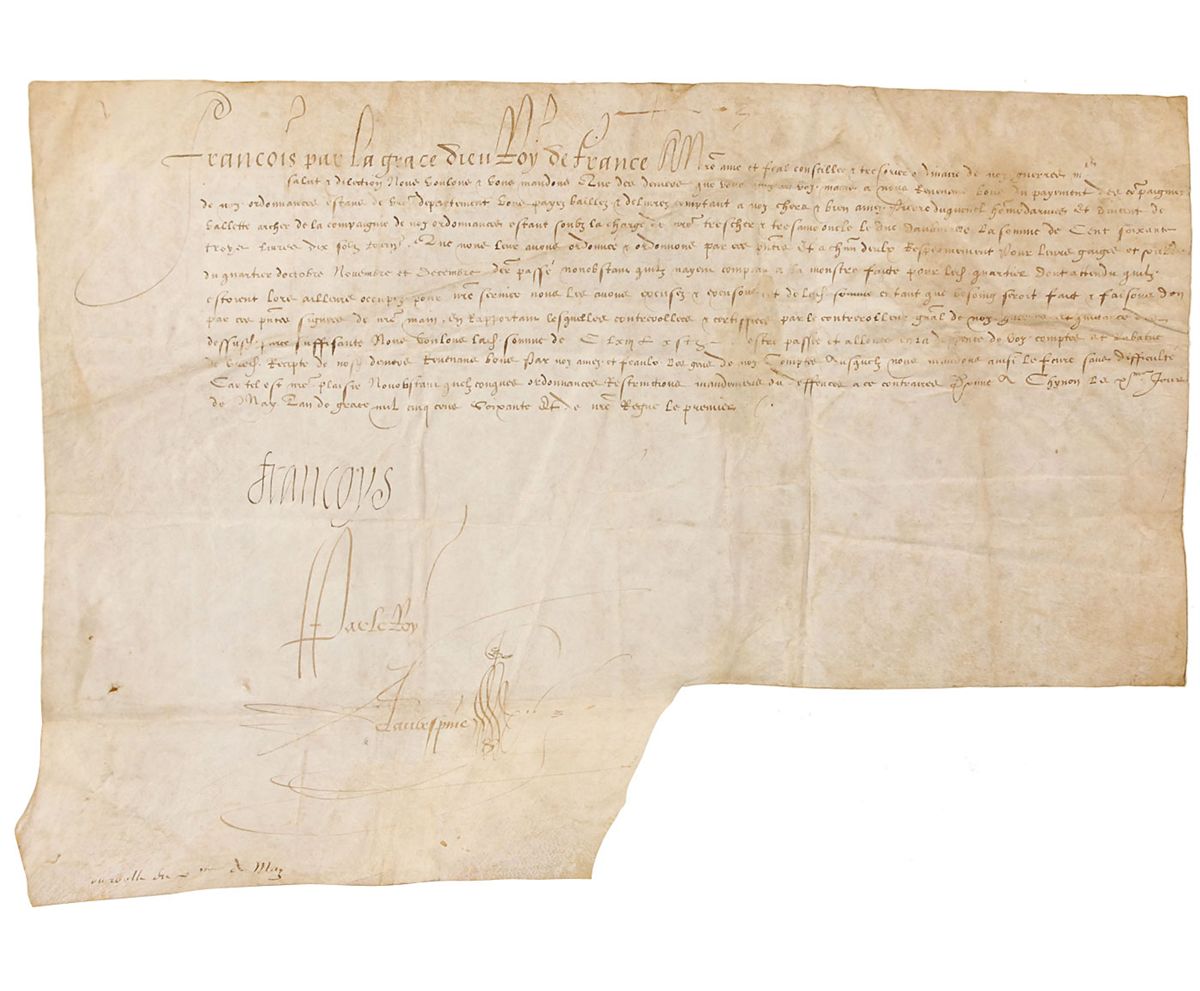 Francois par la grace dieu Roy de france A Nre ame et feal conseiller & tresorier ordinaire de noz guerres
salut & dilection Nous voulons & vous mandons Que des deniers que vous
de noz ordonnances estans de vre departement vous payez baillez & delivrez comptant a noz chers & bien amez Pierre duquenel homedarmes Et de
ballette archer de la compaignie de noz ordonnances estant soubz la charge de nre trescher & tresame oncle le duc Daumalle La somme de Cent soixante
troys livres dix solz tourn Que nous leur avons ordonnee & ordonnons par ces pntes Et a chun deulx Respectivement Pour leurs gaiges et soulde
du quartier doctobre Novembre et Decembre der passe nonobstant quilz nayent comparu a la monstre faicte pour led quartier dont attendu quilz
estoient lors ailleurs occupez pour nre service nous les avons excusez & excusons et de lad somme en tant que besoing seroit fait & faisons don
par ces pntes signees de nre main, en Rapportant lesquelles contrerollees & certiffiees par le contrerolleur gnal de noz guerres et quictance
dessusd suffisante Nous voulons lad somme de C lxiii L x s t estre passee et allouee en la despence de voz comptes et Rabatue
de vred Recepte de nosd deniers Revenans bons Par noz amez et feaulx les gens de noz comptes Ausquelz nous mandons ainsi le faire sans difficulte
Car tel est nre plaisir Nonobstant quelzconques ordonnances Restrinctions mandemens ou deffences a ce contraires Donne A Chynon Le xme Jour
de May Lan de grace mil cinq cens soixante Et de nre Regne le premier
Francoys
Par le Roy
Delaubespine
de May